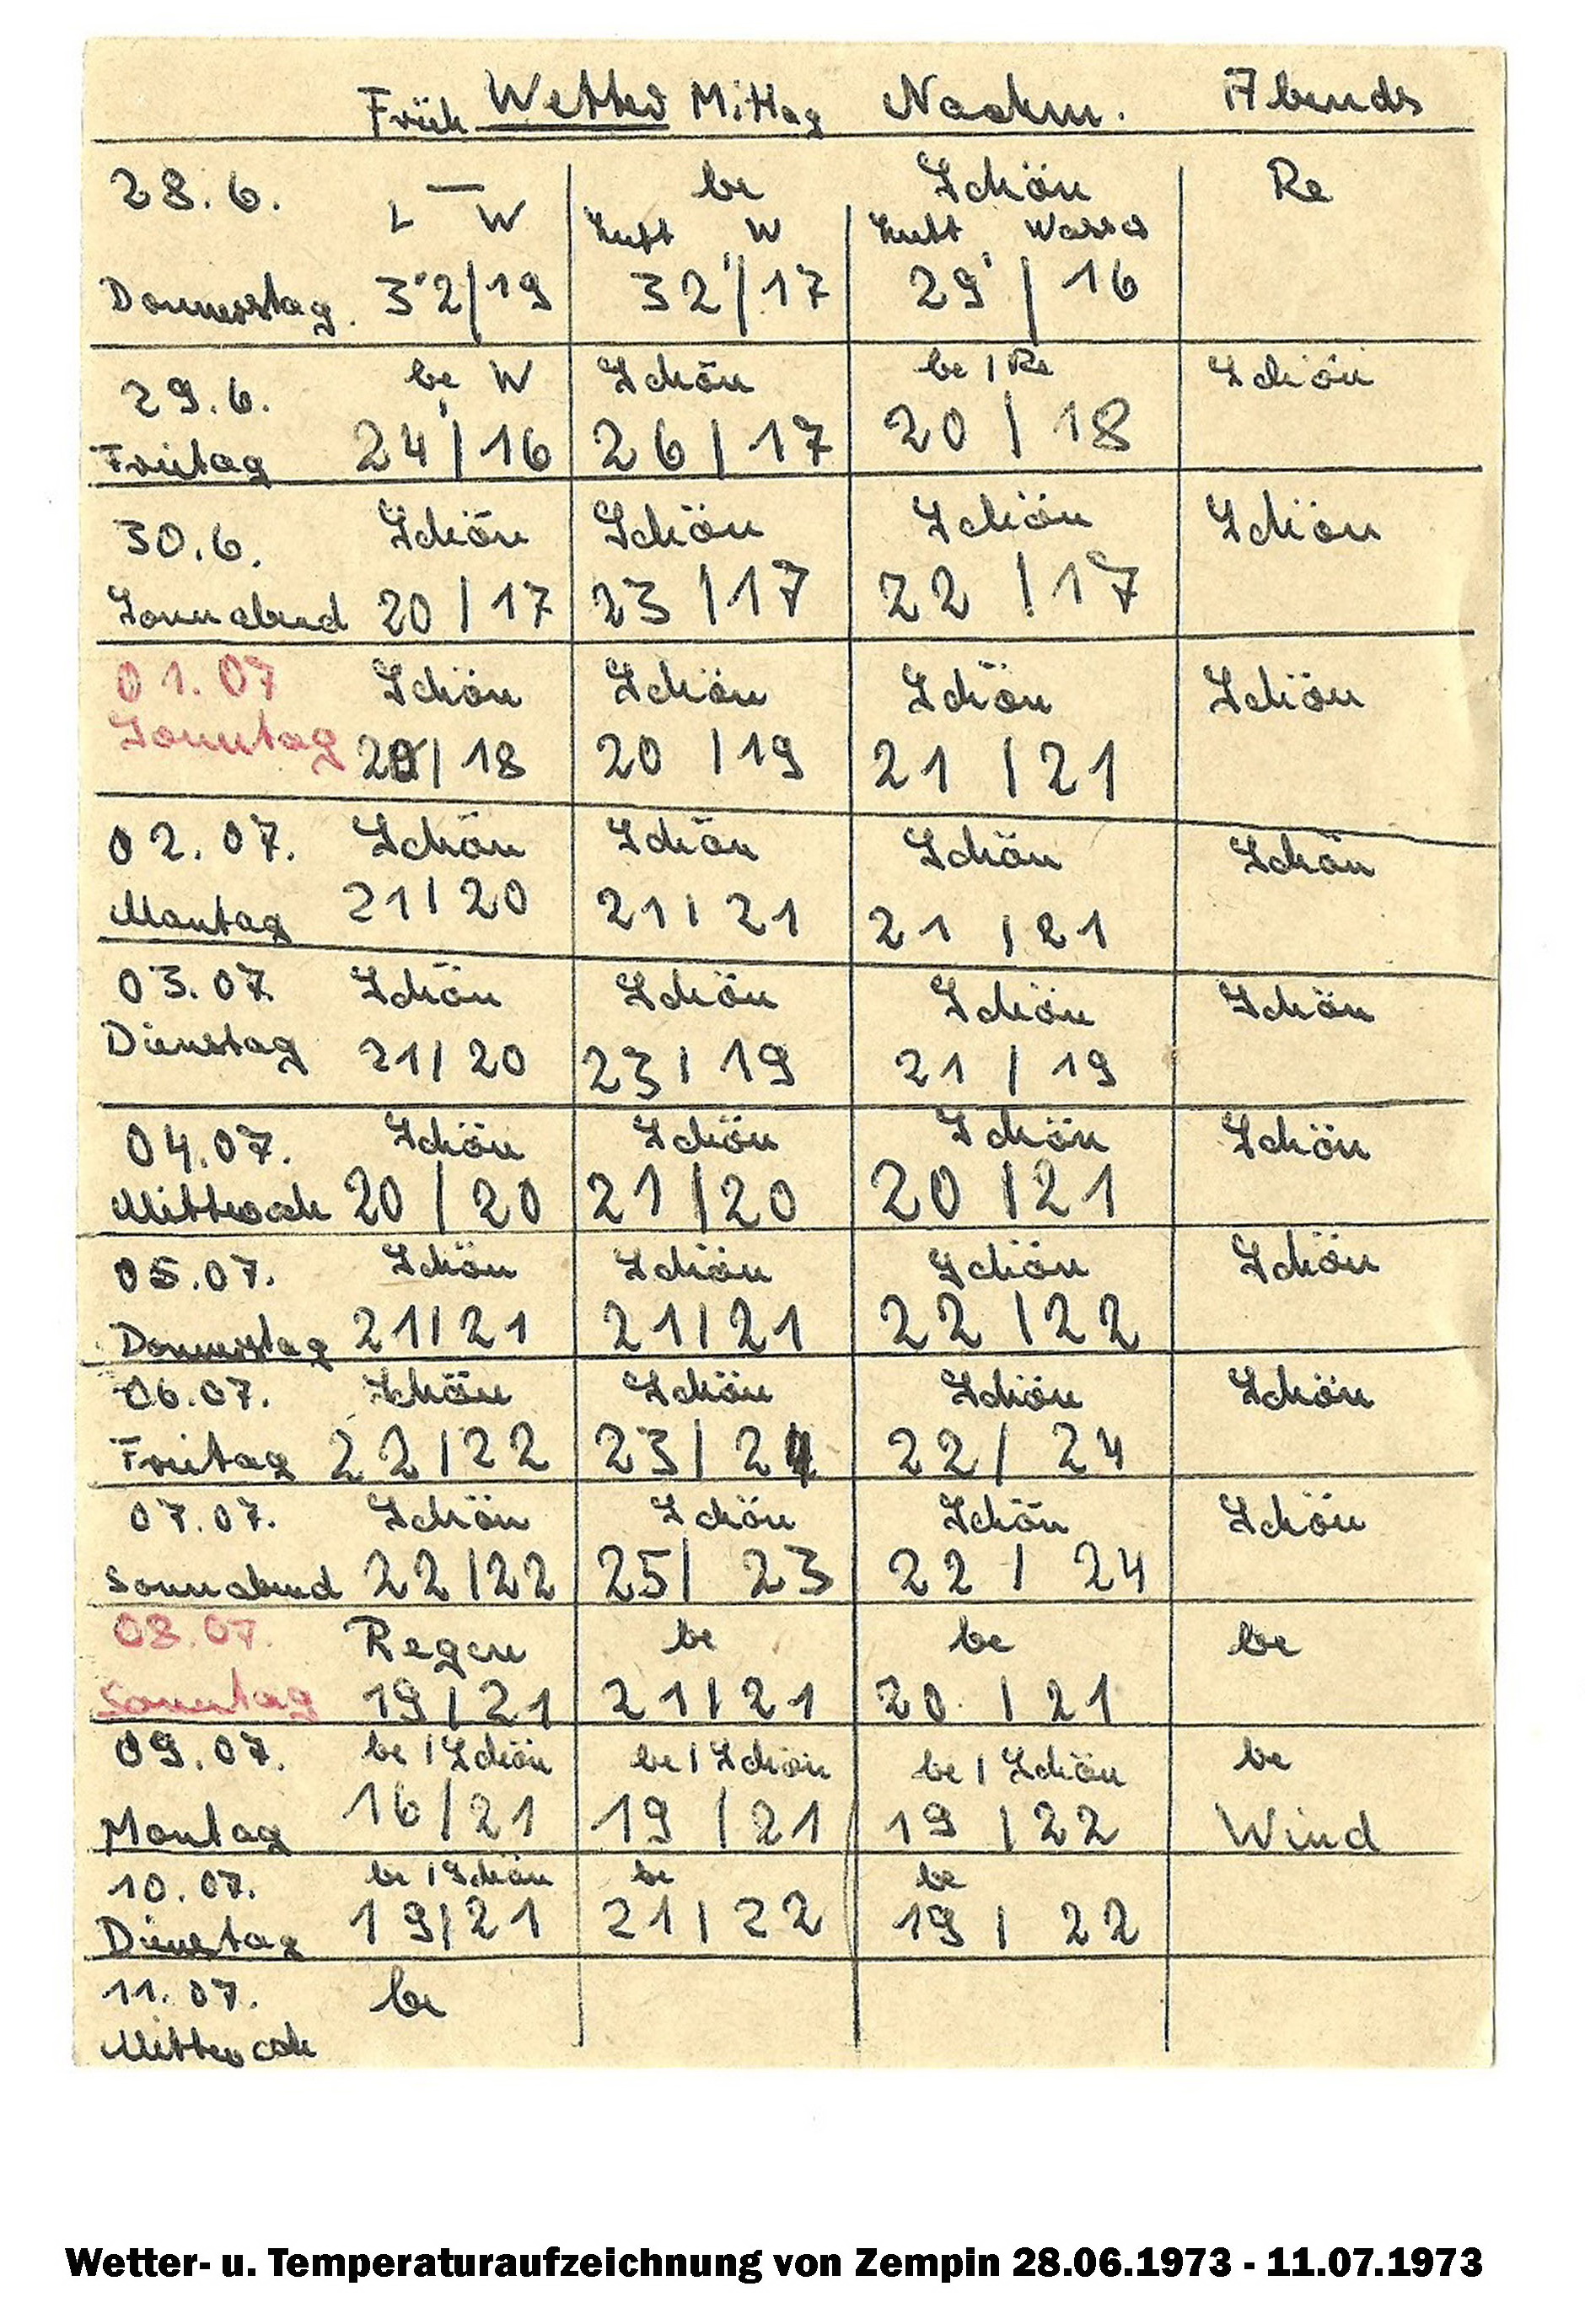 Früh Wetter Mittag Nachm. Abends
28.6. — be Schön Re
L W Luft W Luft Wasser
Donnerstag. 32/19 32/17 29/16
29.6. be W Schön be / Re Schön
Freitag 24/16 26/17 20/18
30.6. Schön Schön Schön Schön
Sonnabend 20/17 23/17 22/17
01.07 Schön Schön Schön Schön
Sonntag 20/18 20/19 21/21
02.07. Schön Schön Schön Schön
Montag 21/20 21/21 21/21
03.07. Schön Schön Schön Schön
Dienstag 21/20 23/19 21/19
04.07. Schön Schön Schön Schön
Mittwoch 20/20 21/20 20/21
05.07. Schön Schön Schön Schön
Donnerstag 21/21 21/21 22/22
06.07. Schön Schön Schön Schön
Freitag 22/22 23/24 22/24
07.07. Schön Schön Schön Schön
Sonnabend 22/22 25/23 22/24
08.07. Regen be be be
Sonntag 19/21 21/21 20/21
09.07. be / Schön be / Schön be / Schön be
Montag 16/21 19/21 19/22 Wind
10.07. be / Schön be be
Dienstag 19/21 21/22 19/22
11.07. be
Mittwoch
Wetter- u. Temperaturaufzeichnung von Zempin 28.06.1973 - 11.07.1973